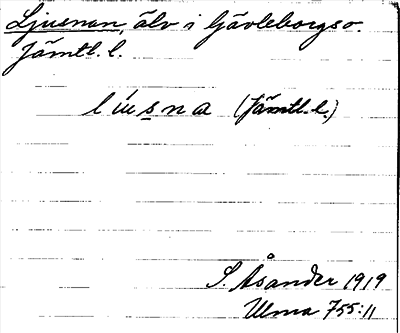 Ljusnan, älv i Gävleborgs o.
Jämtl. l.
l íu s n a (Jämtl. l.)
S. Åsander 1919
Ulma 755:11